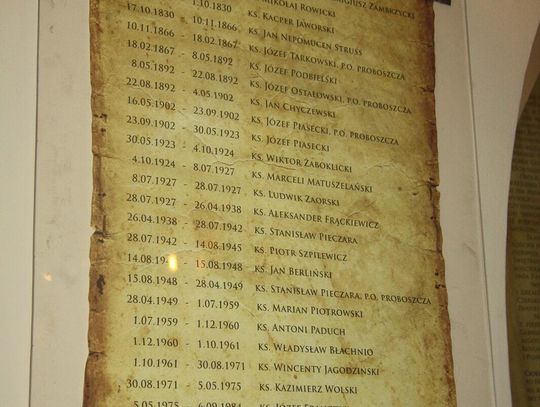 ZAMBRZYCKI
MIKOŁAJ ROWICKI
1.10.1830 KS. KACPER JAWORSKI
17.10.1830 - 10.11.1866 KS. JAN NEPOMUCEN STRUSS
10.11.1866 - 18.02.1867 KS. JÓZEF TARKOWSKI, P.O. PROBOSZCZA
18.02.1867 - 8.05.1892 KS. JÓZEF PODBIELSKI
8.05.1892 - 22.08.1892 KS. JÓZEF OSTAŁOWSKI, P.O. PROBOSZCZA
22.08.1892 - 4.05.1902 KS. JAN CHYCZEWSKI
16.05.1902 - 23.09.1902 KS. JÓZEF PIASECKI, P.O. PROBOSZCZA
23.09.1902 - 30.05.1923 KS. JÓZEF PIASECKI
30.05.1923 - 4.10.1924 KS. WIKTOR ZABOKLICKI
4.10.1924 - 8.07.1927 KS. MARCELI MATUSZELAŃSKI
8.07.1927 - 28.07.1927 KS. LUDWIK ZAORSKI
28.07.1927 - 26.04.1938 KS. ALEKSANDER FRĄCKIEWICZ
26.04.1938 - 28.07.1942 KS. STANISŁAW PIECZARA
28.07.1942 - 14.08.1945 KS. PIOTR SZPILEWICZ
14.08.194 - 15.08.1948 KS. JAN BERLIŃSKI
15.08.1948 - 28.04.1949 KS. STANISŁAW PIECZARA, P.O. PROBOSZCZA
28.04.1949 - 1.07.1959 KS. MARIAN PIOTROWSKI
1.07.1959 - 1.12.1960 KS. ANTONI PADUCH
1.12.1960 - 1.10.1961 KS. WŁADYSŁAW BŁACHNIO
1.10.1961 - 30.08.1971 KS. WINCENTY JAGODZIŃSKI
30.08.1971 - 5.05.1975 KS. KAZIMIERZ WOLSKI
5.05.1975 - 6.09.1984 KS. JÓZEF